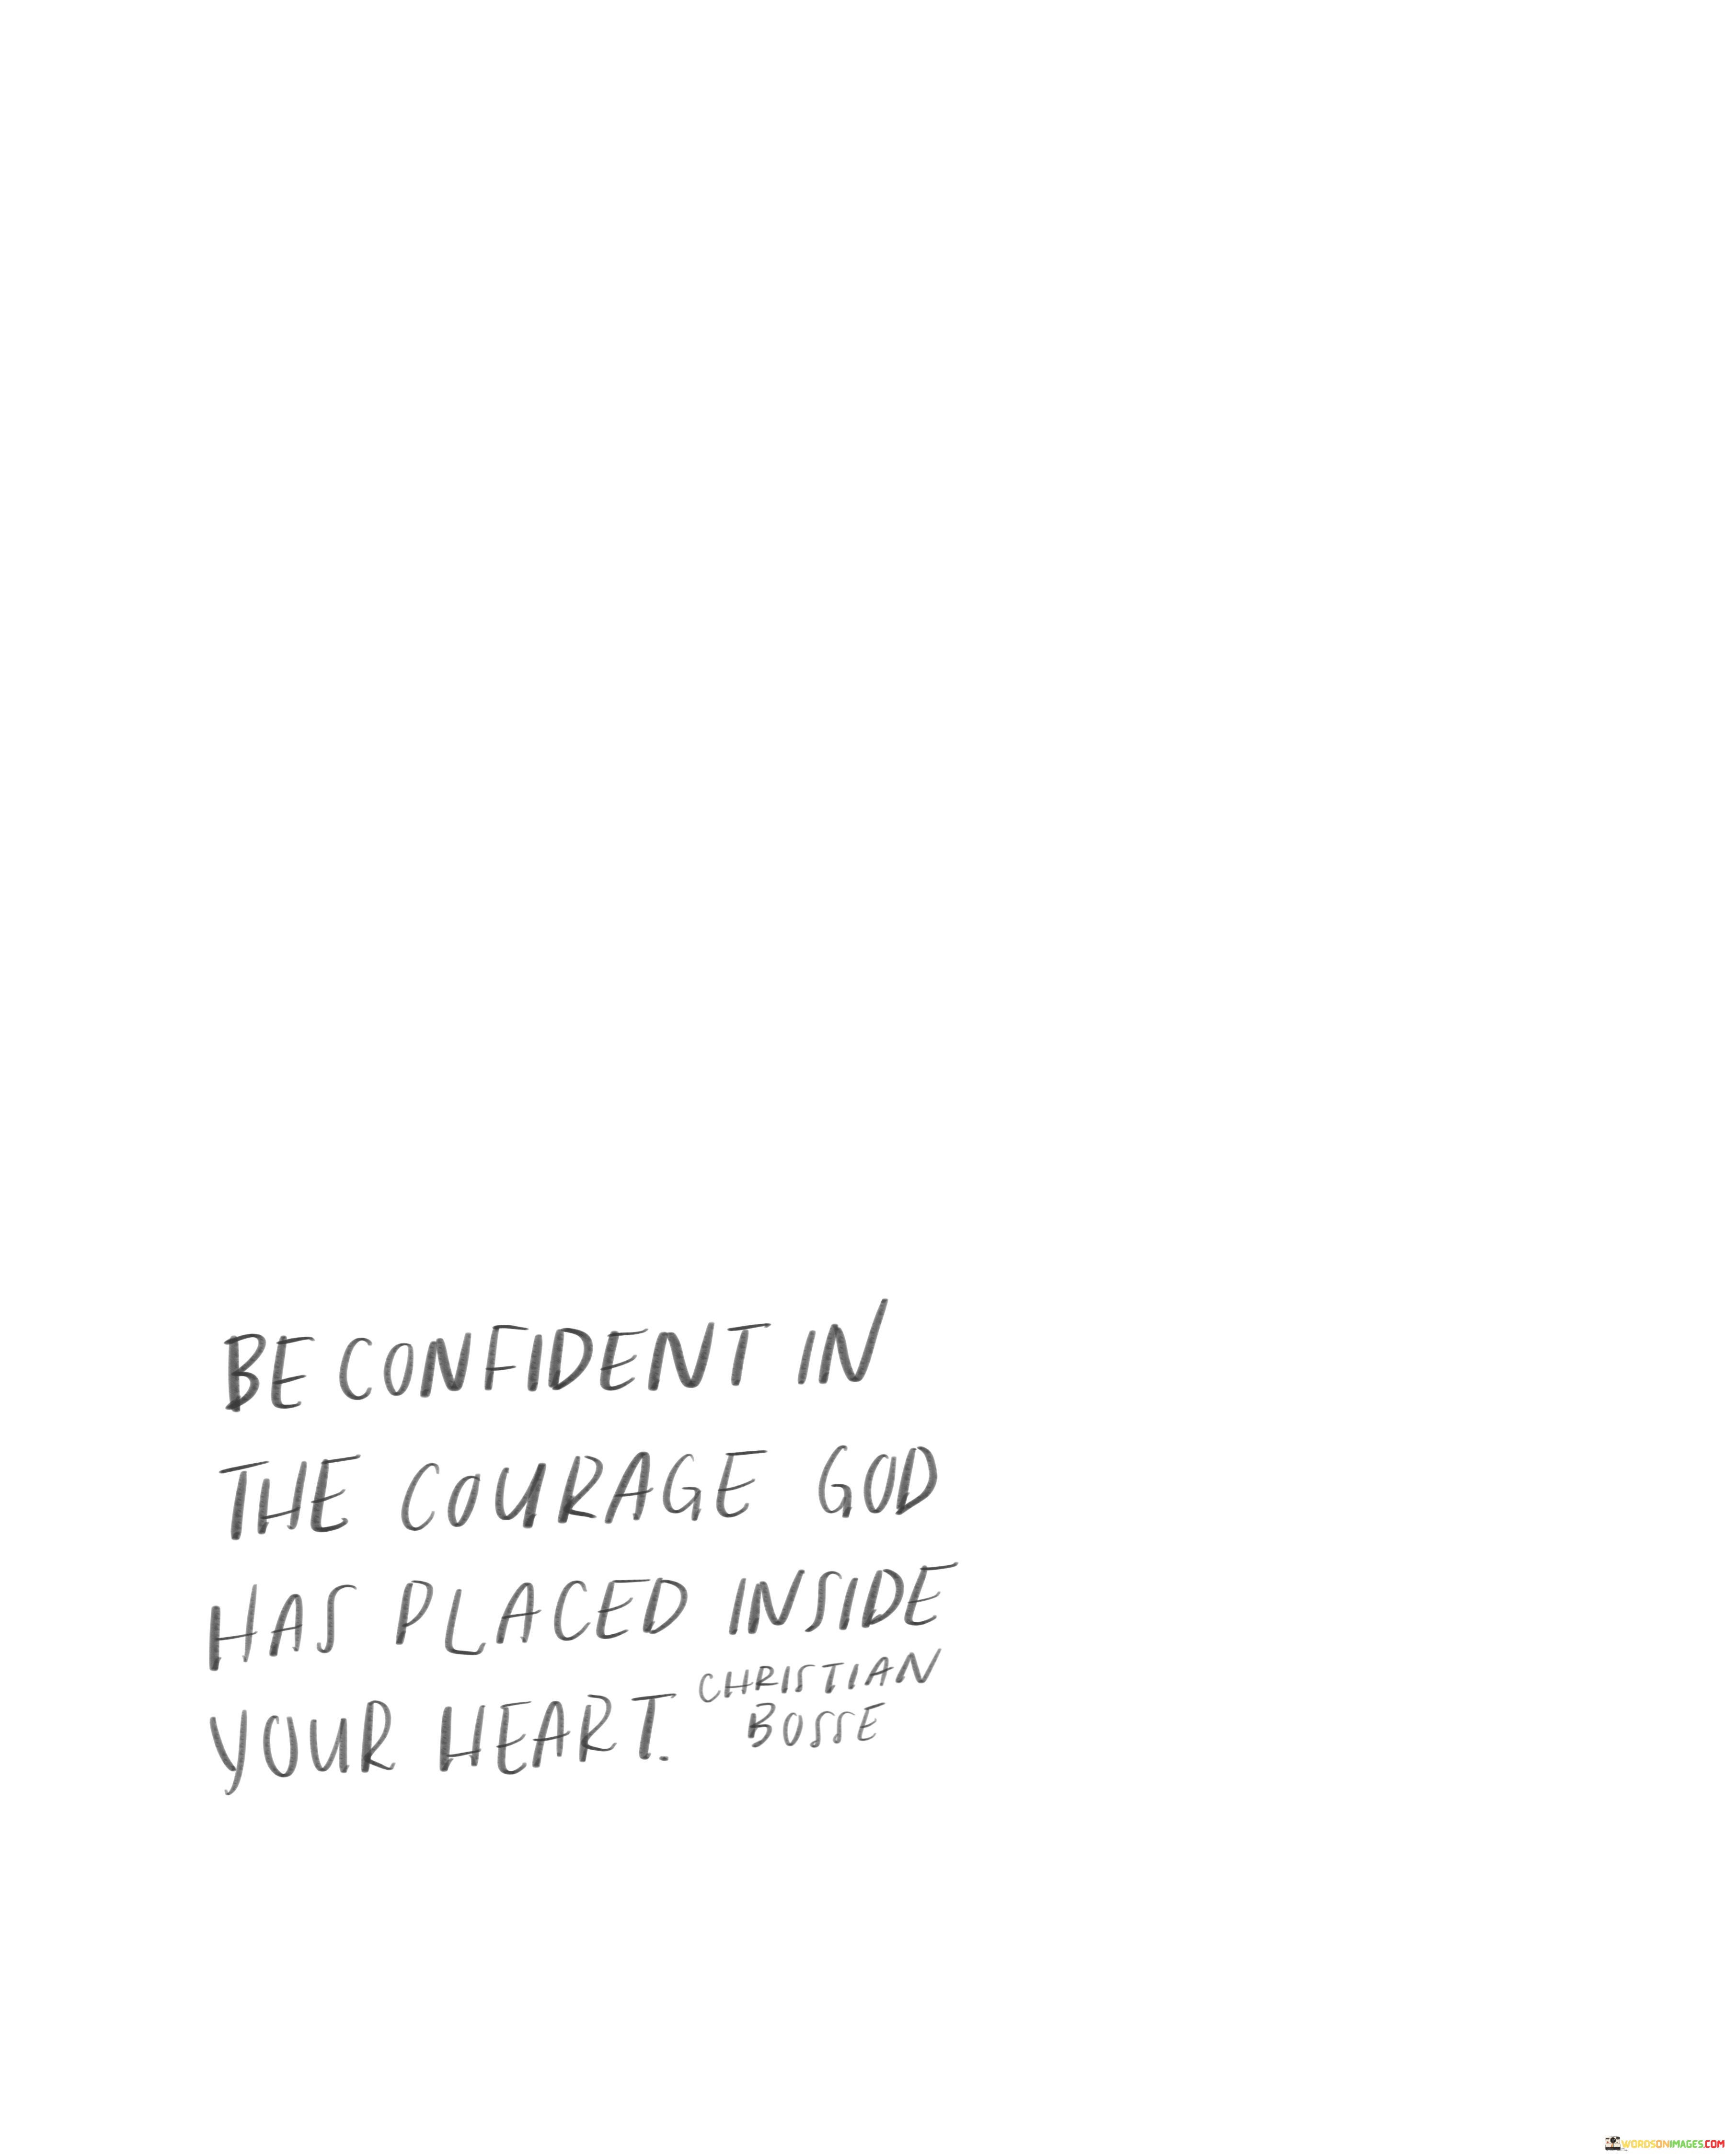 BE CONFIDENT IN
THE COURAGE GOD
HAS PLACED INSIDE
YOUR HEART.
CHRISTIAN
BOSSE
WORDSONIMAGES.COM